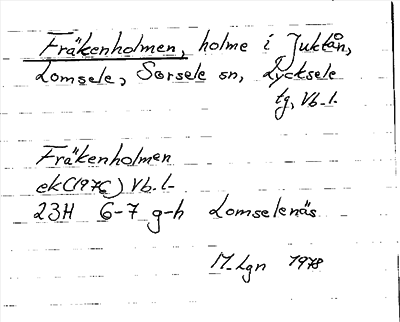 Fräkenholmen, holme i Juktån,
Lomsele, Sorsele sn, Lycksele
tg, Vb. l.
Fräkenholmen
ek(1976) Vb. l.
23H 6-7 g-h Lomselenäs
M. Lgn 1978